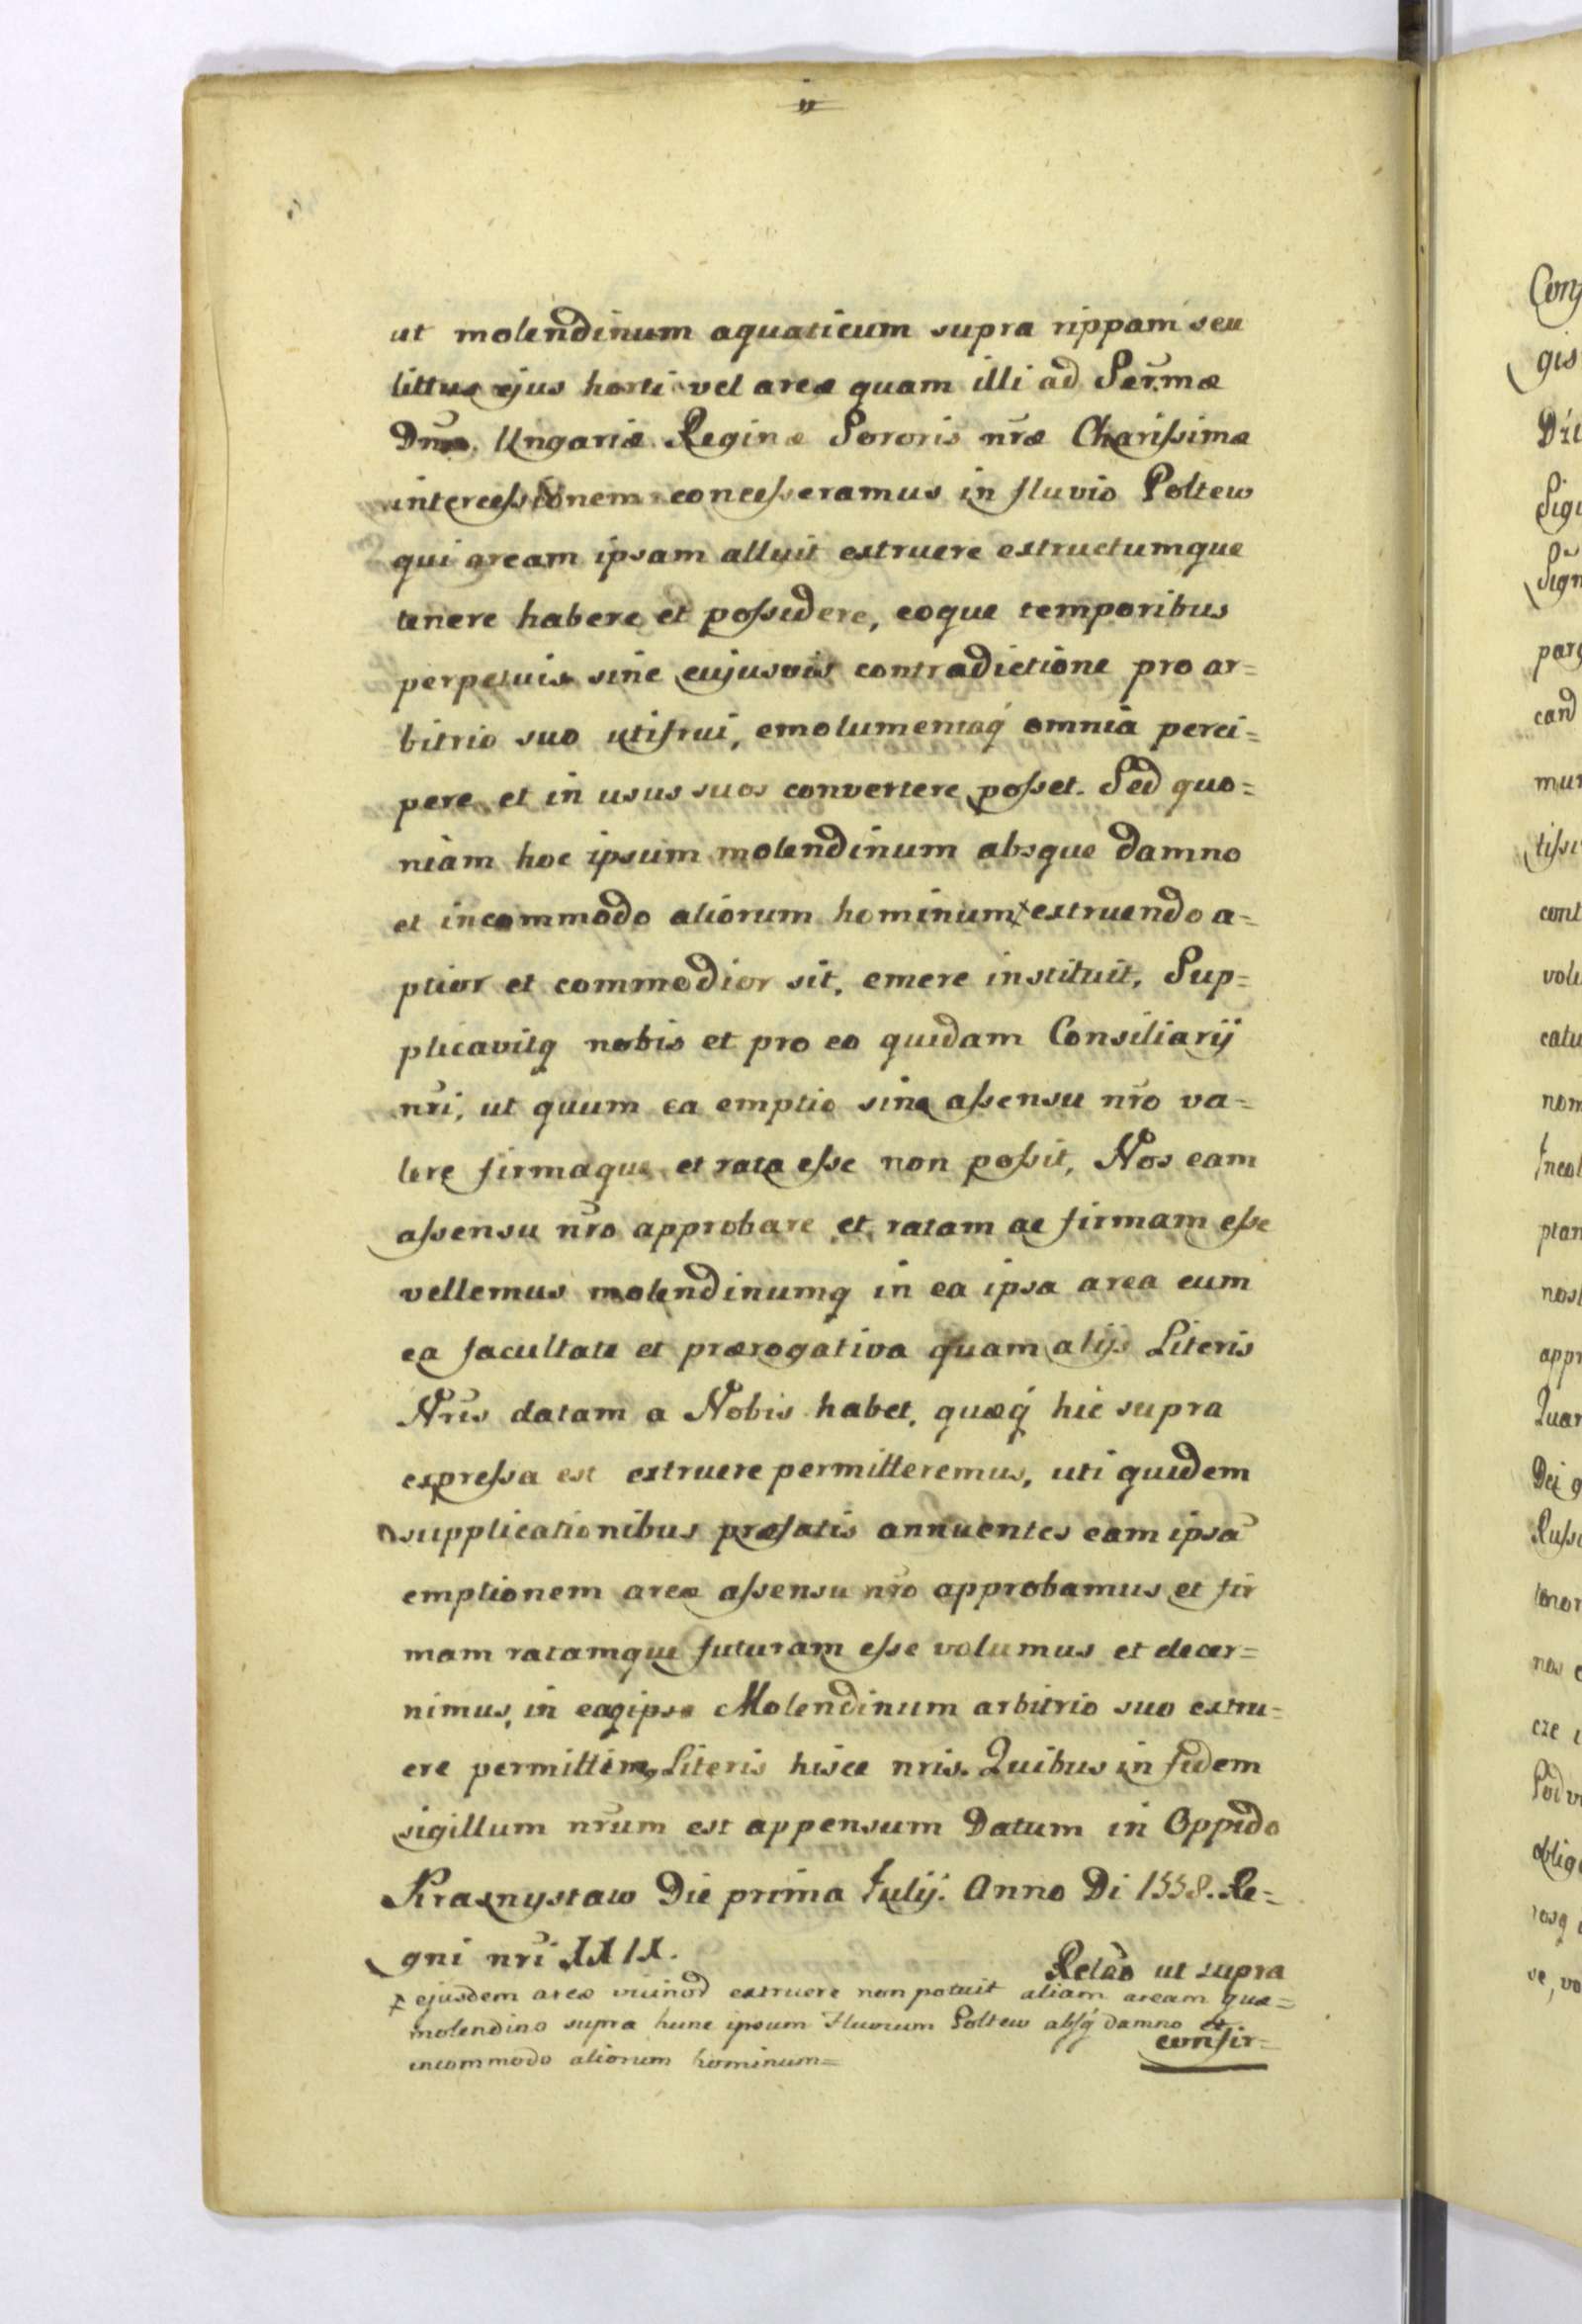 ut molendinum aquaticum supra rippam seu
littus ejus horti vel areæ quam illi ad Serm̃æ
Dnæ. Ungariæ Reginæ Sororis nr̃æ Charissimæ
intercessionem concesseramus in fluvio Poltew
qui aream ipsam alluit extruere extructumque
tenere habere et possidere, eoque temporibus
perpetuis sine cujusvis contradictione pro ar=
bitrio suo utifrui, emolumentaq́ omnia perci=
pere et in usus suos convertere posset. Sed quo=
niam hoc ipsum molendinum absque damno
et incommodo aliorum hominum ⨯ extruendo a=
ptior et commodior sit, emere instituit, Sup=
plicavitq nobis et pro eo quidam Consiliarij
nr̃i, ut quum ea emptio sine assensu nr̃o va=
lere firmaque et rata esse non possit, Nos eam
assensu nr̃o approbare et ratam ac firmam esse
vellemus molendinumq in ea ipsa area cum
ea facultate et prærogativa quam alijs Literis
Nr̃is datam a Nobis habet, quæq́ hic supra
expressa est extruere permitteremus, uti quidem
supplicationibus præfatis annuentes eam ipsã
emptionem areæ assensu nr̃o approbamus et fir
mam ratamque futuram esse volumus et decer=
nimus, in eaq ipsa Molendinum arbitrio suo extru=
ere permittim9 Literis hisce nris. Quibus in fidem
sigillum nr̃um est appensum Datum in Oppido
Krasnystaw Die prima Julij. Anno Di 1558. Re=
gni nr̃i XXIX.
Relão ut supra
⨯ ejusdem areæ extruere non potuit aliam aream quæ=
molendino supra hunc ipsum Fluvium Poltew absq́ damno et
incommodo aliorum hominum=
confir=